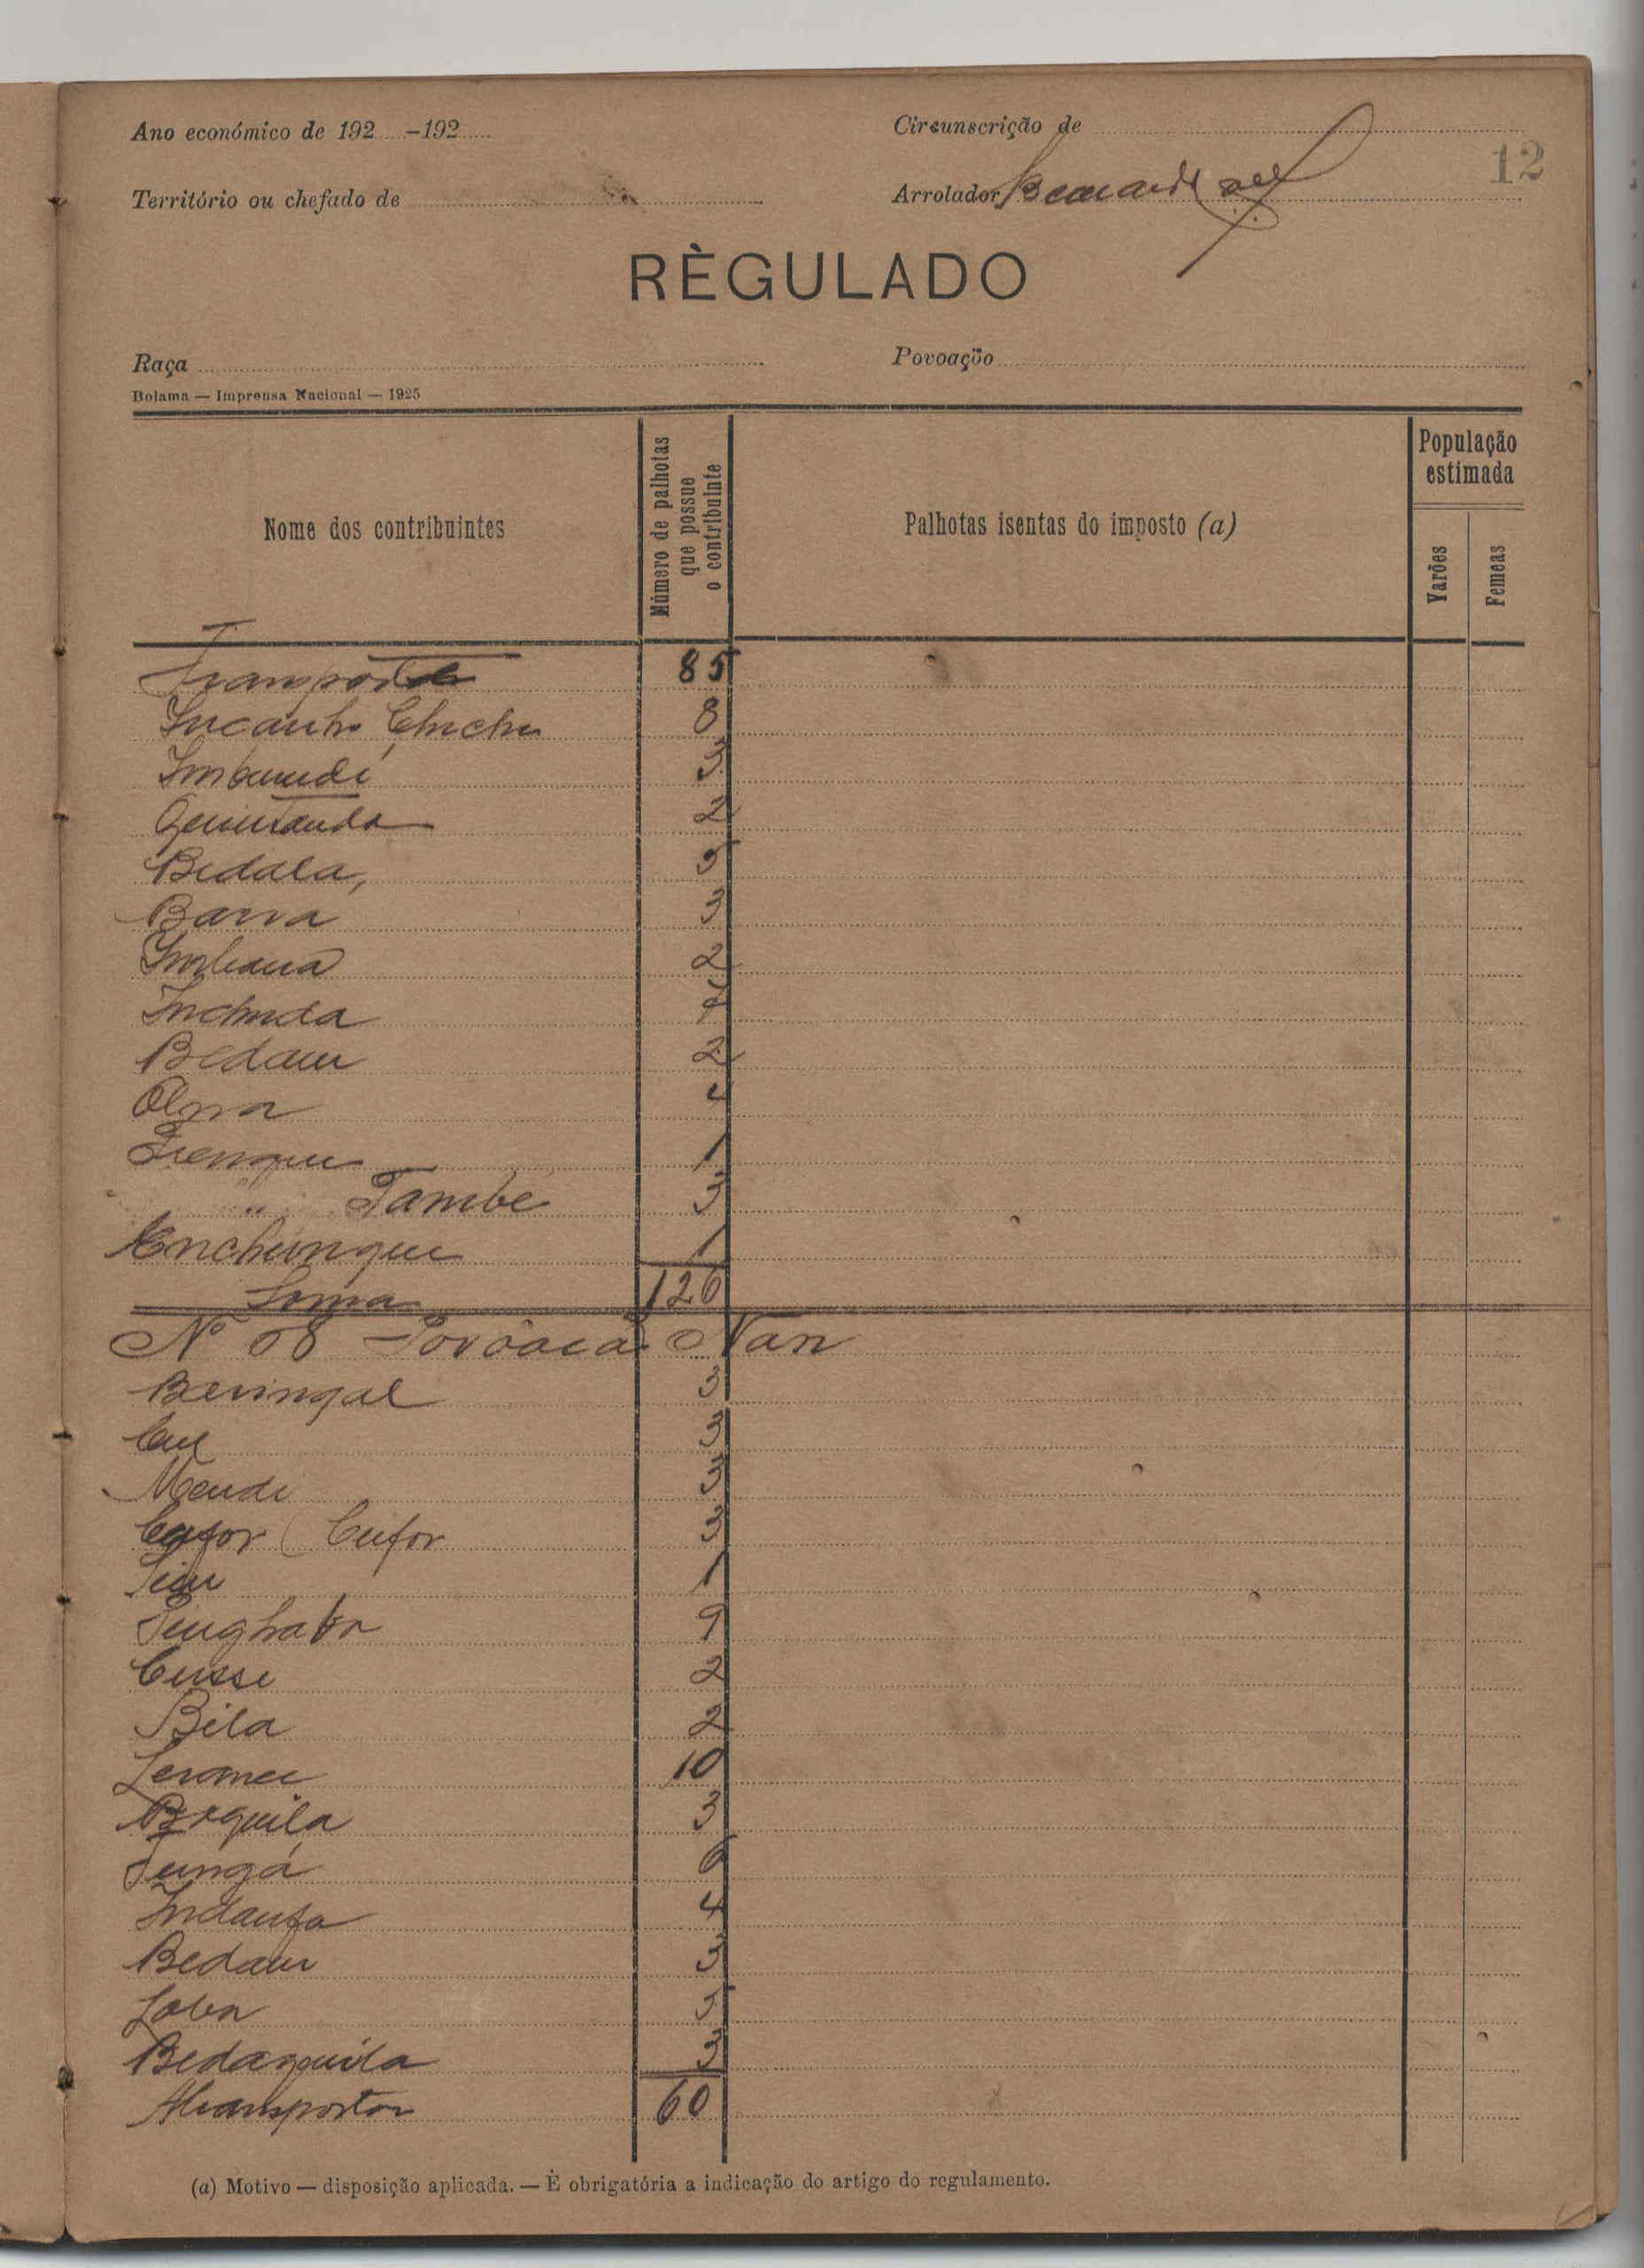 Ano económico de 192 -192
Circunscrição de
12
Território ou chefado de
Arrolador
RÈGULADO
Raça
Povoação
Bolama — Imprensa Nacional — 1925
Nome dos contribuintes
Número de palhotas que possue o contribuinte
Palhotas isentas do imposto (a)
População estimada
Varões
Femeas
Transporte 85
Incanho Chichu 8
Imbundi 3
2
Bidala, 5
Barra 3
2
Inchuda
Bedam 2
4
1
" Tambe 3
Enchungue 1
Soma 126
Nº 08 Povoacão Nan
Beringal 3
3
3
Cafor (Cufor 3
1
9
Cusse 2
Bila 2
10
3
Tungá 6
Indanfa 4
Bedam 3
5
Bedanquila 3
Atransportar 60
(a) Motivo — disposição aplicada. — È obrigatória a indicação do artigo do regulamento.